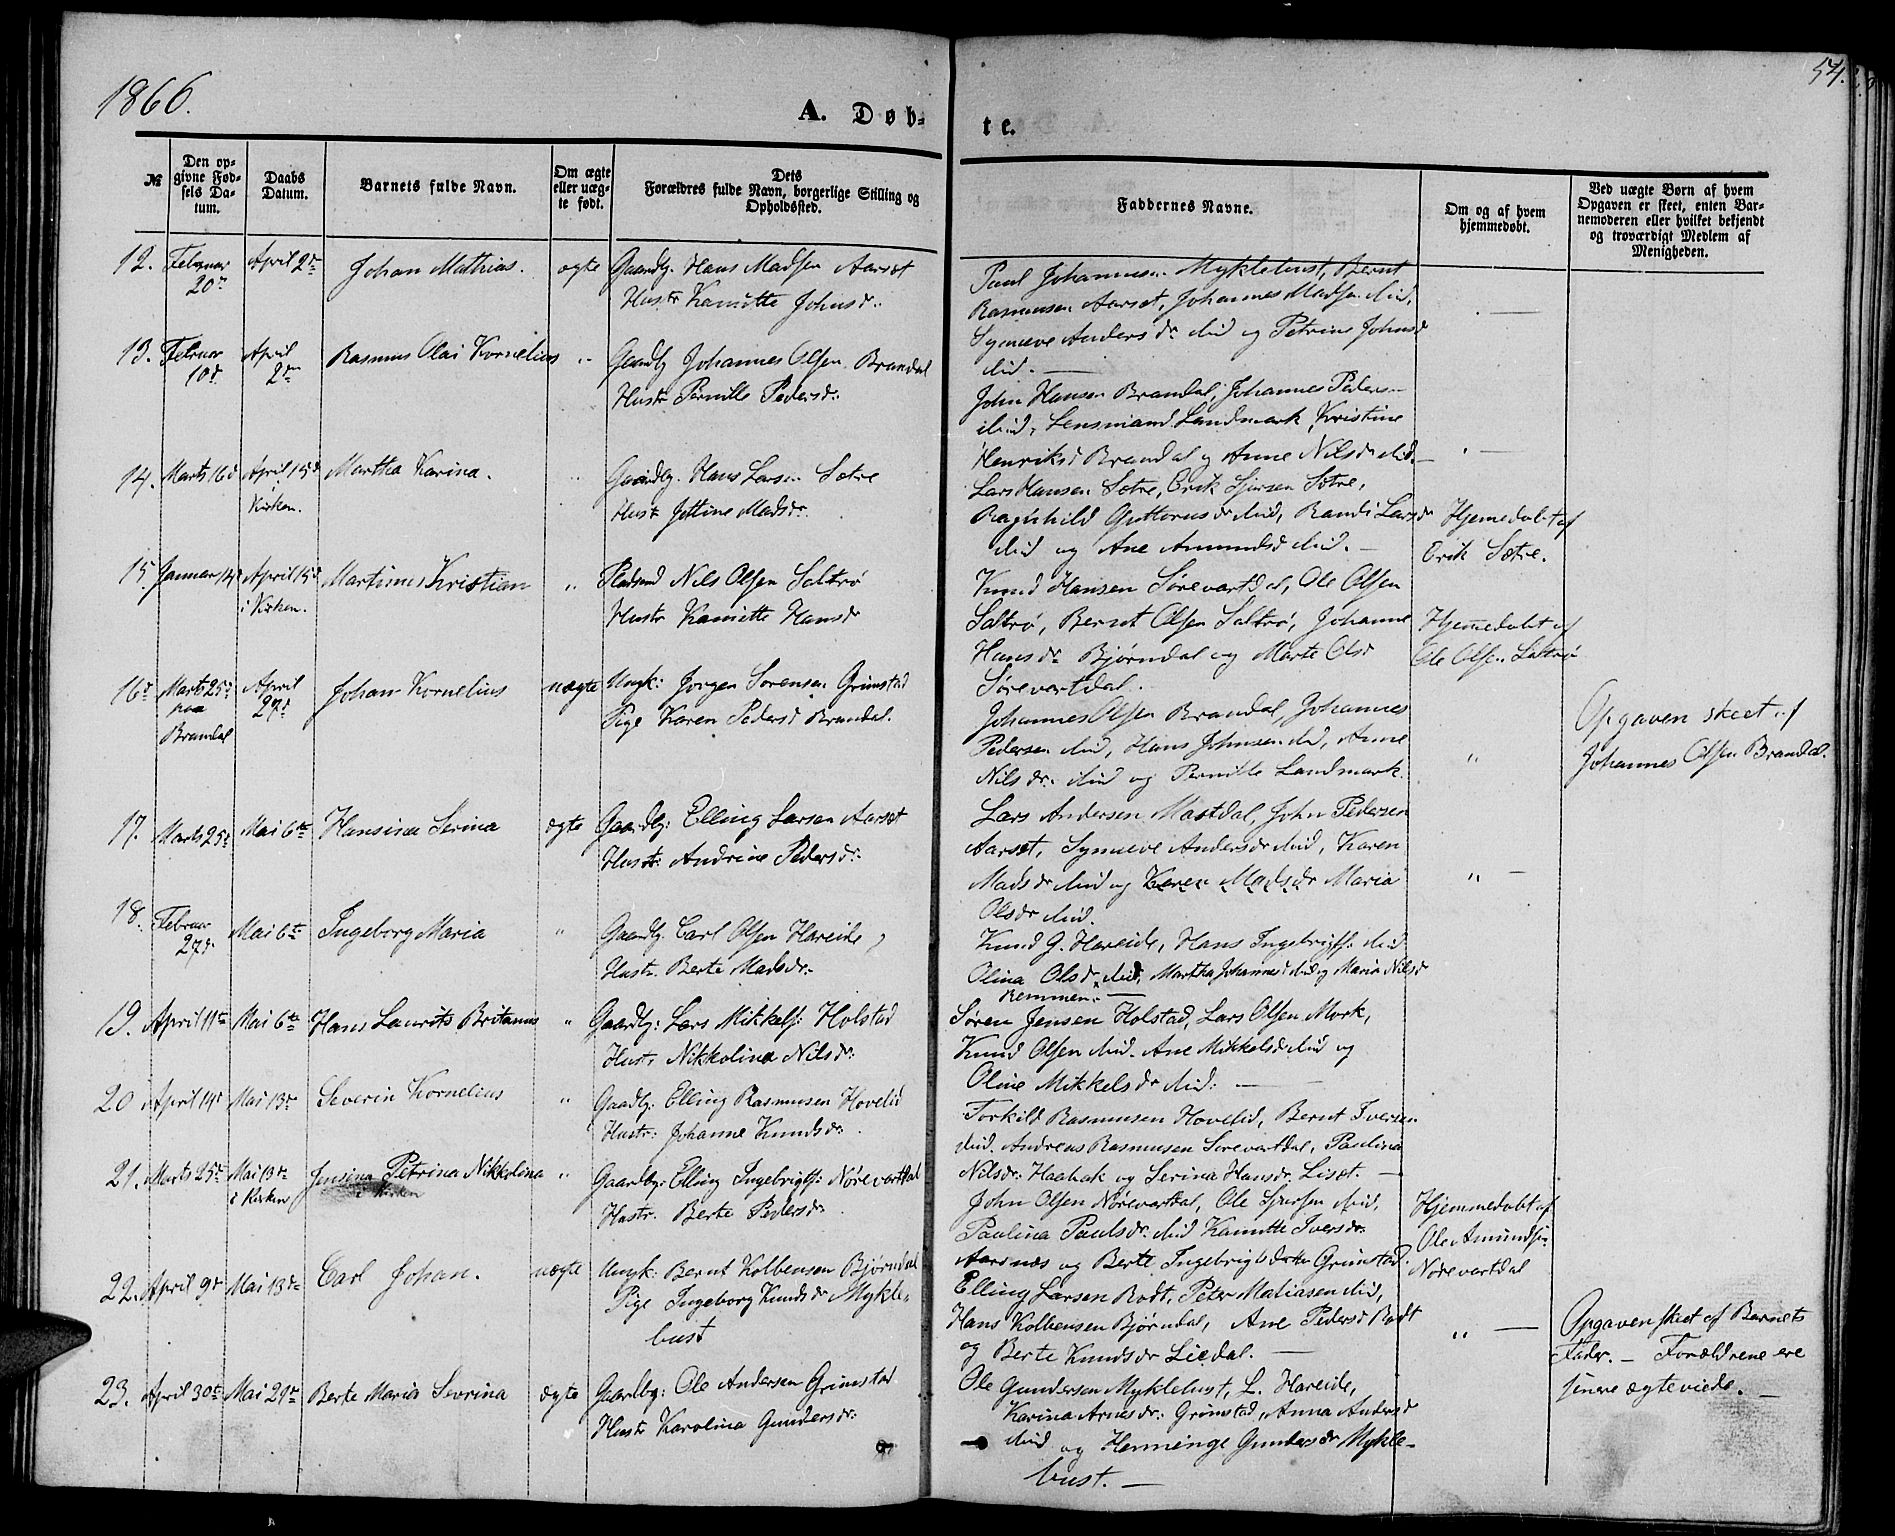 1866.
54.
A. Døb-
te.
№
Den opgivne Fødsels Datum.
Daabs Datum.
Barnets fulde Navn.
Om ægte eller uægte født.
Dets Forældres fulde Navn, borgerlige Stilling og Opholdssted.
Faddernes Navne.
Om og af hvem hjemmedøbt.
Ved uægte Børn af hvem Opgaven er skeet, enten Barnemoderen eller hvilket bekjendt og troværdigt Medlem af Menigheden.
12. Februar 20de April 2den Johan Mathias. ægte Gaardbr. Hans Madsen Aarset
Hustr Kanutte Johnsdr.
Paul Johannesen Myklebust, Bernt
Rasmusen Aarset, Johannes Madsen ibid,
Synneve Andersdr ibid og Petrine Johnsd
ibid. —
13. Februar 10d April 2den Rasmus Olai Kornelius " Gaardbr Johannes Olsen Brandal
Hustr Pernille Pedersdr.
John Hansen Brandal, Johannes Pedersen
ibid, Lensmand Landmark, Kristine
Henriksd Brandal og Anne Nilsdr ibid —
14. Marts 16d April 15d Kirken. Martha Karina. " Gaardbr. Hans Larsen Sætre
Hustr Jettine Madsdr
Lars Hansen Sætre, Erik Sjursen Sætre,
Raghnild Guttormsdr ibid, Randi Larsdr
ibid og Ane Amundsd ibid. —
Hjemedøbt af
Erik Sætre.
15. Januar 14d April 15d i Kirken. Martinus Kristian " Pladsmd Nils Olsen Saltrø
Hustr Kanutte Hansdr
Knud Hansen Sørevartdal, Ole Olsen
Saltrø, Bernt Olsen Saltrø, Johanne
Hansdr Bjørndal og Marte Olsd
Sørevartdal.
Hjemedøbt af
Ole Olsen Saltrø
16d Marts 25d paa Brandal April 27d Johan Kornelius uægte Ungk: Jørgen Sørensen Grimstad
Pige Karen Pedersd Brandal.
Johannes Olsen Brandal, Johannes
Pedersen ibid, Hans Johnsen ibid, Anne
Nilsdr. ibid og Pernille Landmark.
"
Opgaven skeet af
Johannes Olsen Brandal.
17. Marts 25d Mai 6te Hansina Serina ægte Gaardbr: Elling Larsen Aarset
Hustr: Andrine Pedersdr.
Lars Andersen Mastdal, John Pedersen
Aarset, Synneve Andersdr ibid, Karen
Madsdr ibid og Karen Madsdr Maria
Olsdr ibid.
" —
18. Februar 27d Mai 6te Ingeborg Maria " Gaardbr. Carl Olsen Hareide,
Hustr. Berte Madsdr.
Knud G. Hareide, Hans Ingebrigts. ibid
Olina Olsdr ibid, Martha Johannesd ibid og Maria Nilsdr
Remmen. —
19. April 11te Mai 6te Hans Laurits Britanus " Gaardbr: Lars Mikkels: Holstad
Hustr Nikkolina Nilsdr:
Søren Jensen Holstad, Lars Olsen Mork,
Knud Olsen ibid. Ane Mikkelsd ibid og
Oline Mikkelsdr ibid: —
20 April 14d Mai 13de Severin Kornelius " Gaardbr: Elling Rasmusen Hovelid
Hustr: Johanne Knudsdr:
Torkild Rasmusen Hovelid, Bernt Iversen
ibid. Andreas Rasmusen Sørevartdal, Paulina
Nilsdr: Haahak og Serina Hansdr. Liset. —
21. Marts 25de Mai 13de i Kirken Jensina Petrina Nikkolina " Gaardbr: Elling Ingebrigts: Nørevartdal
i Kirken
Hustr. Berte Pedersdr:
John Olsen Nørevartdal, Ole Sjursen ibid,
Paulina Paulsdr. ibid Kanutte Iversdr:
Aarsnæs og Berte Ingebrigtsdatter Grimstad.
Hjemmedøbt af
Ole Amundsen
Nørevartdal
22. April 9d Mai 13de Carl Johan. uægte Ungk: Bernt Kolbensen Bjørndal
Pige Ingeborg Knudsdr Mykle-
bust
Elling Larsen Rødt, Peter Maliasen ibid,
Hans Kolbensen Bjørndal, Ane Pedersd Rødt
og Berte Knudsdr Liedal. —
" —
Opgaven skeet af Barnets
Fader. — Forældrene ere
senere ægteviede. —
23. April 30te Mai 21de Berte Maria Sevrina ægte Gaardbr: Ole Andersen Grimstad
Hustr Karolina Gundersdr:
Ole Gundersen Myklebust, L. Hareide,
Karina Arnesdr. Grimstad, Anna Andersd
ibid og Henninge Gundersdr Mykle-
bust. —